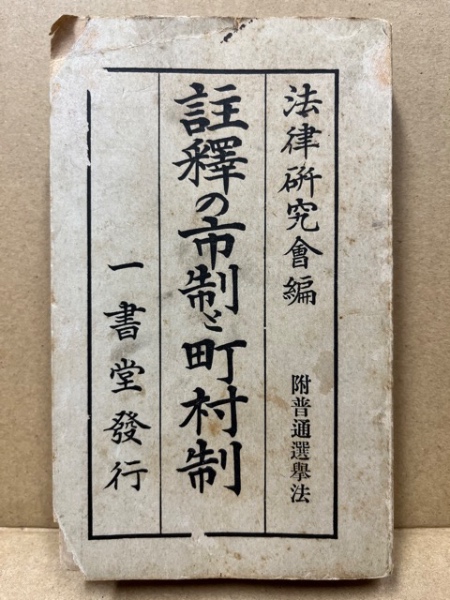 法律研究會編
附普通選擧法
註釋の市制と町村制
一書堂發行